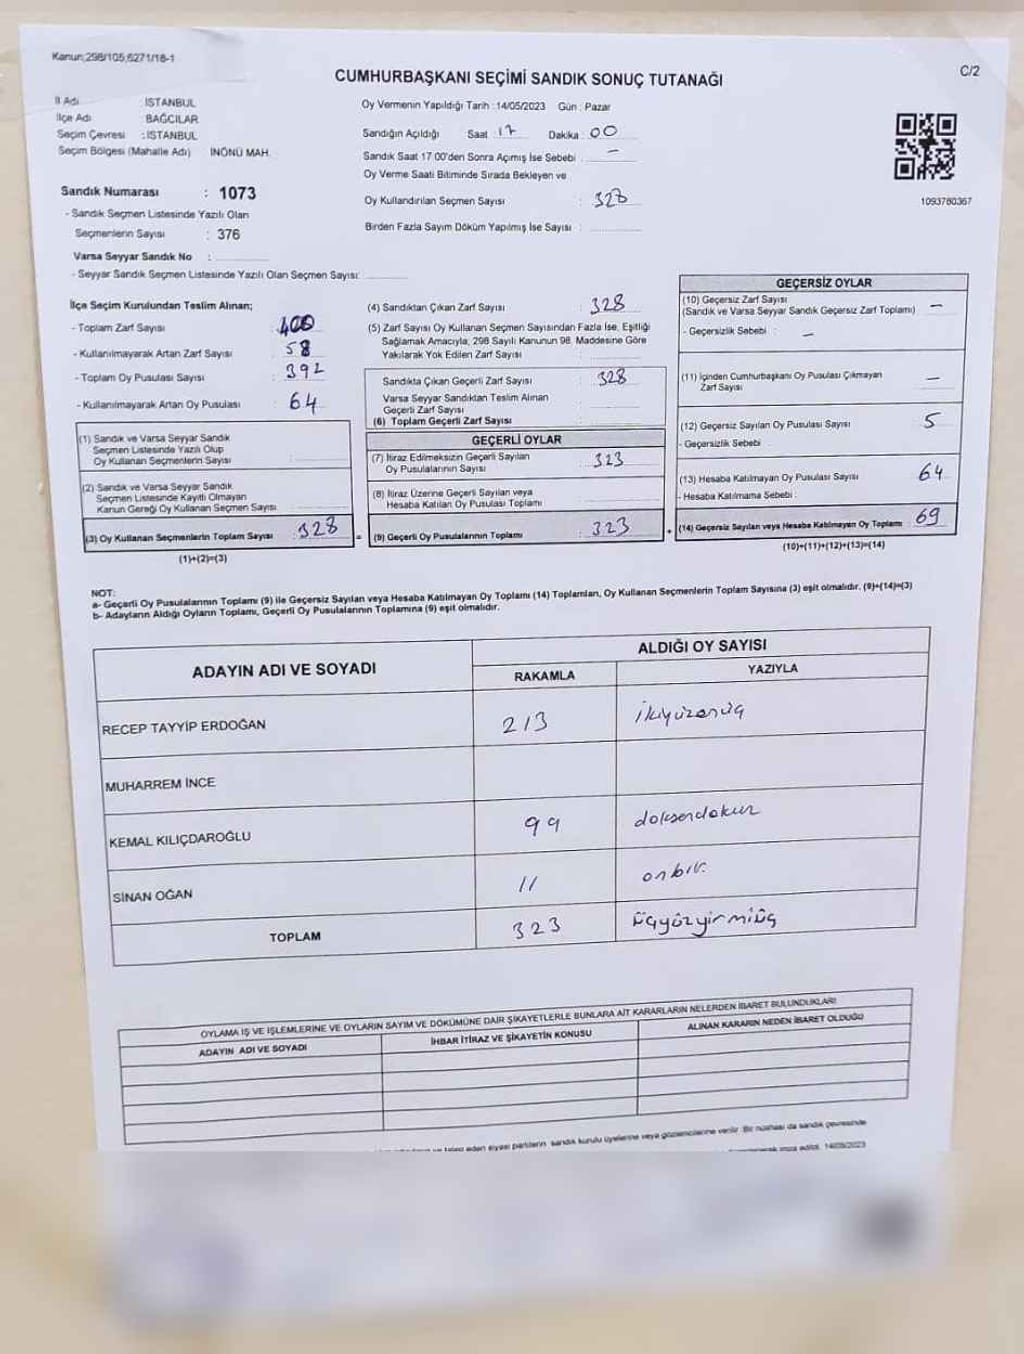 Kanun;298/105;6271/18-1
C/2
CUMHURBAŞKANI SEÇİMİ SANDIK SONUÇ TUTANAĞI
İl Adı : İSTANBUL
İlçe Adı : BAĞCILAR
Seçim Çevresi : İSTANBUL
Seçim Bölgesi (Mahalle Adı) İNÖNÜ MAH.
Sandık Numarası : 1073
- Sandık Seçmen Listesinde Yazılı Olan
Seçmenlerin Sayısı : 376
Varsa Seyyar Sandık No :
- Seyyar Sandık Seçmen Listesinde Yazılı Olan Seçmen Sayısı:
Oy Vermenin Yapıldığı Tarih : 14/05/2023 Gün : Pazar
Sandığın Açıldığı Saat : 17 Dakika : 00
Sandık Saat 17 00'den Sonra Açımış İse Sebebi : —
Oy Verme Saati Bitiminde Sırada Bekleyen ve
Oy Kullandırılan Seçmen Sayısı : 328
Birden Fazla Sayım Döküm Yapılmış İse Sayısı :
1093780367
İlçe Seçim Kurulundan Teslim Alınan;
- Toplam Zarf Sayısı : 400
- Kullanılmayarak Artan Zarf Sayısı : 58
- Toplam Oy Pusulası Sayısı : 392
- Kullanılmayarak Artan Oy Pusulası : 64
(1) Sandık ve Varsa Seyyar Sandık
Seçmen Listesinde Yazılı Olup
Oy Kullanan Seçmenlerin Sayısı :
(2) Sandık ve Varsa Seyyar Sandık
Seçmen Listesinde Kayıtlı Olmayan
Kanun Gereği Oy Kullanan Seçmen Sayısı :
(3) Oy Kullanan Seçmenlerin Toplam Sayısı : 328
(1)+(2)=(3)
(4) Sandıktan Çıkan Zarf Sayısı : 328
(5) Zarf Sayısı Oy Kullanan Seçmen Sayısından Fazla İse, Eşitliği
Sağlamak Amacıyla; 298 Sayılı Kanunun 98. Maddesine Göre
Yakılarak Yok Edilen Zarf Sayısı :
Sandıkta Çıkan Geçerli Zarf Sayısı : 328
Varsa Seyyar Sandıktan Teslim Alınan
Geçerli Zarf Sayısı :
(6) Toplam Geçerli Zarf Sayısı :
GEÇERLİ OYLAR
(7) İtiraz Edilmeksizin Geçerli Sayılan
Oy Pusulalarının Sayısı : 323
(8) İtiraz Üzerine Geçerli Sayılan veya
Hesaba Katılan Oy Pusulası Toplamı :
= (9) Geçerli Oy Pusulalarının Toplamı : 323 +
GEÇERSİZ OYLAR
(10) Geçersiz Zarf Sayısı
(Sandık ve Varsa Seyyar Sandık Geçersiz Zarf Toplamı) : —
- Geçersizlik Sebebi : —
(11) İçinden Cumhurbaşkanı Oy Pusulası Çıkmayan
Zarf Sayısı : —
(12) Geçersiz Sayılan Oy Pusulası Sayısı : 5
- Geçersizlik Sebebi :
(13) Hesaba Katılmayan Oy Pusulası Sayısı : 64
- Hesaba Katılmama Sebebi :
(14) Geçersiz Sayılan veya Hesaba Katılmayan Oy Toplamı : 69
(10)+(11)+(12)+(13)=(14)
NOT:
a- Geçerli Oy Pusulalarının Toplamı (9) ile Geçersiz Sayılan veya Hesaba Katılmayan Oy Toplamı (14) Toplamları, Oy Kullanan Seçmenlerin Toplam Sayısına (3) eşit olmalıdır. (9)+(14)=(3)
b- Adayların Aldığı Oyların Toplamı, Geçerli Oy Pusulalarının Toplamına (9) eşit olmalıdır.
ADAYIN ADI VE SOYADI
ALDIĞI OY SAYISI
RAKAMLA YAZIYLA
RECEP TAYYİP ERDOĞAN 213 ikiyüzonüç
MUHARREM İNCE
KEMAL KILIÇDAROĞLU 99 doksandokuz
SİNAN OĞAN 11 onbir.
TOPLAM 323 üçyüzyirmiüç
OYLAMA İŞ VE İŞLEMLERİNE VE OYLARIN SAYIM VE DÖKÜMÜNE DAİR ŞİKAYETLERLE BUNLARA AİT KARARLARIN NELERDEN İBARET BULUNDUKLARI
ADAYIN ADI VE SOYADI İHBAR İTİRAZ VE ŞİKAYETİN KONUSU ALINAN KARARIN NEDEN İBARET OLDUĞU
eden siyasi partilerin sandık kurulu üyelerine veya gözlemcilerine verilir. Bir nüshası da sandık çevresinde
imza edildi. 14/05/2023